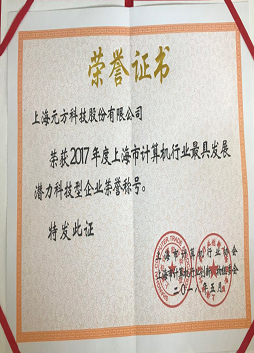 荣誉证书
上海元方科技股份有限公司
荣获2017年度上海市计算机行业最具发展
潜力科技型企业荣誉称号。
特发此证
上海市计算机行业协会
二〇一八年五月